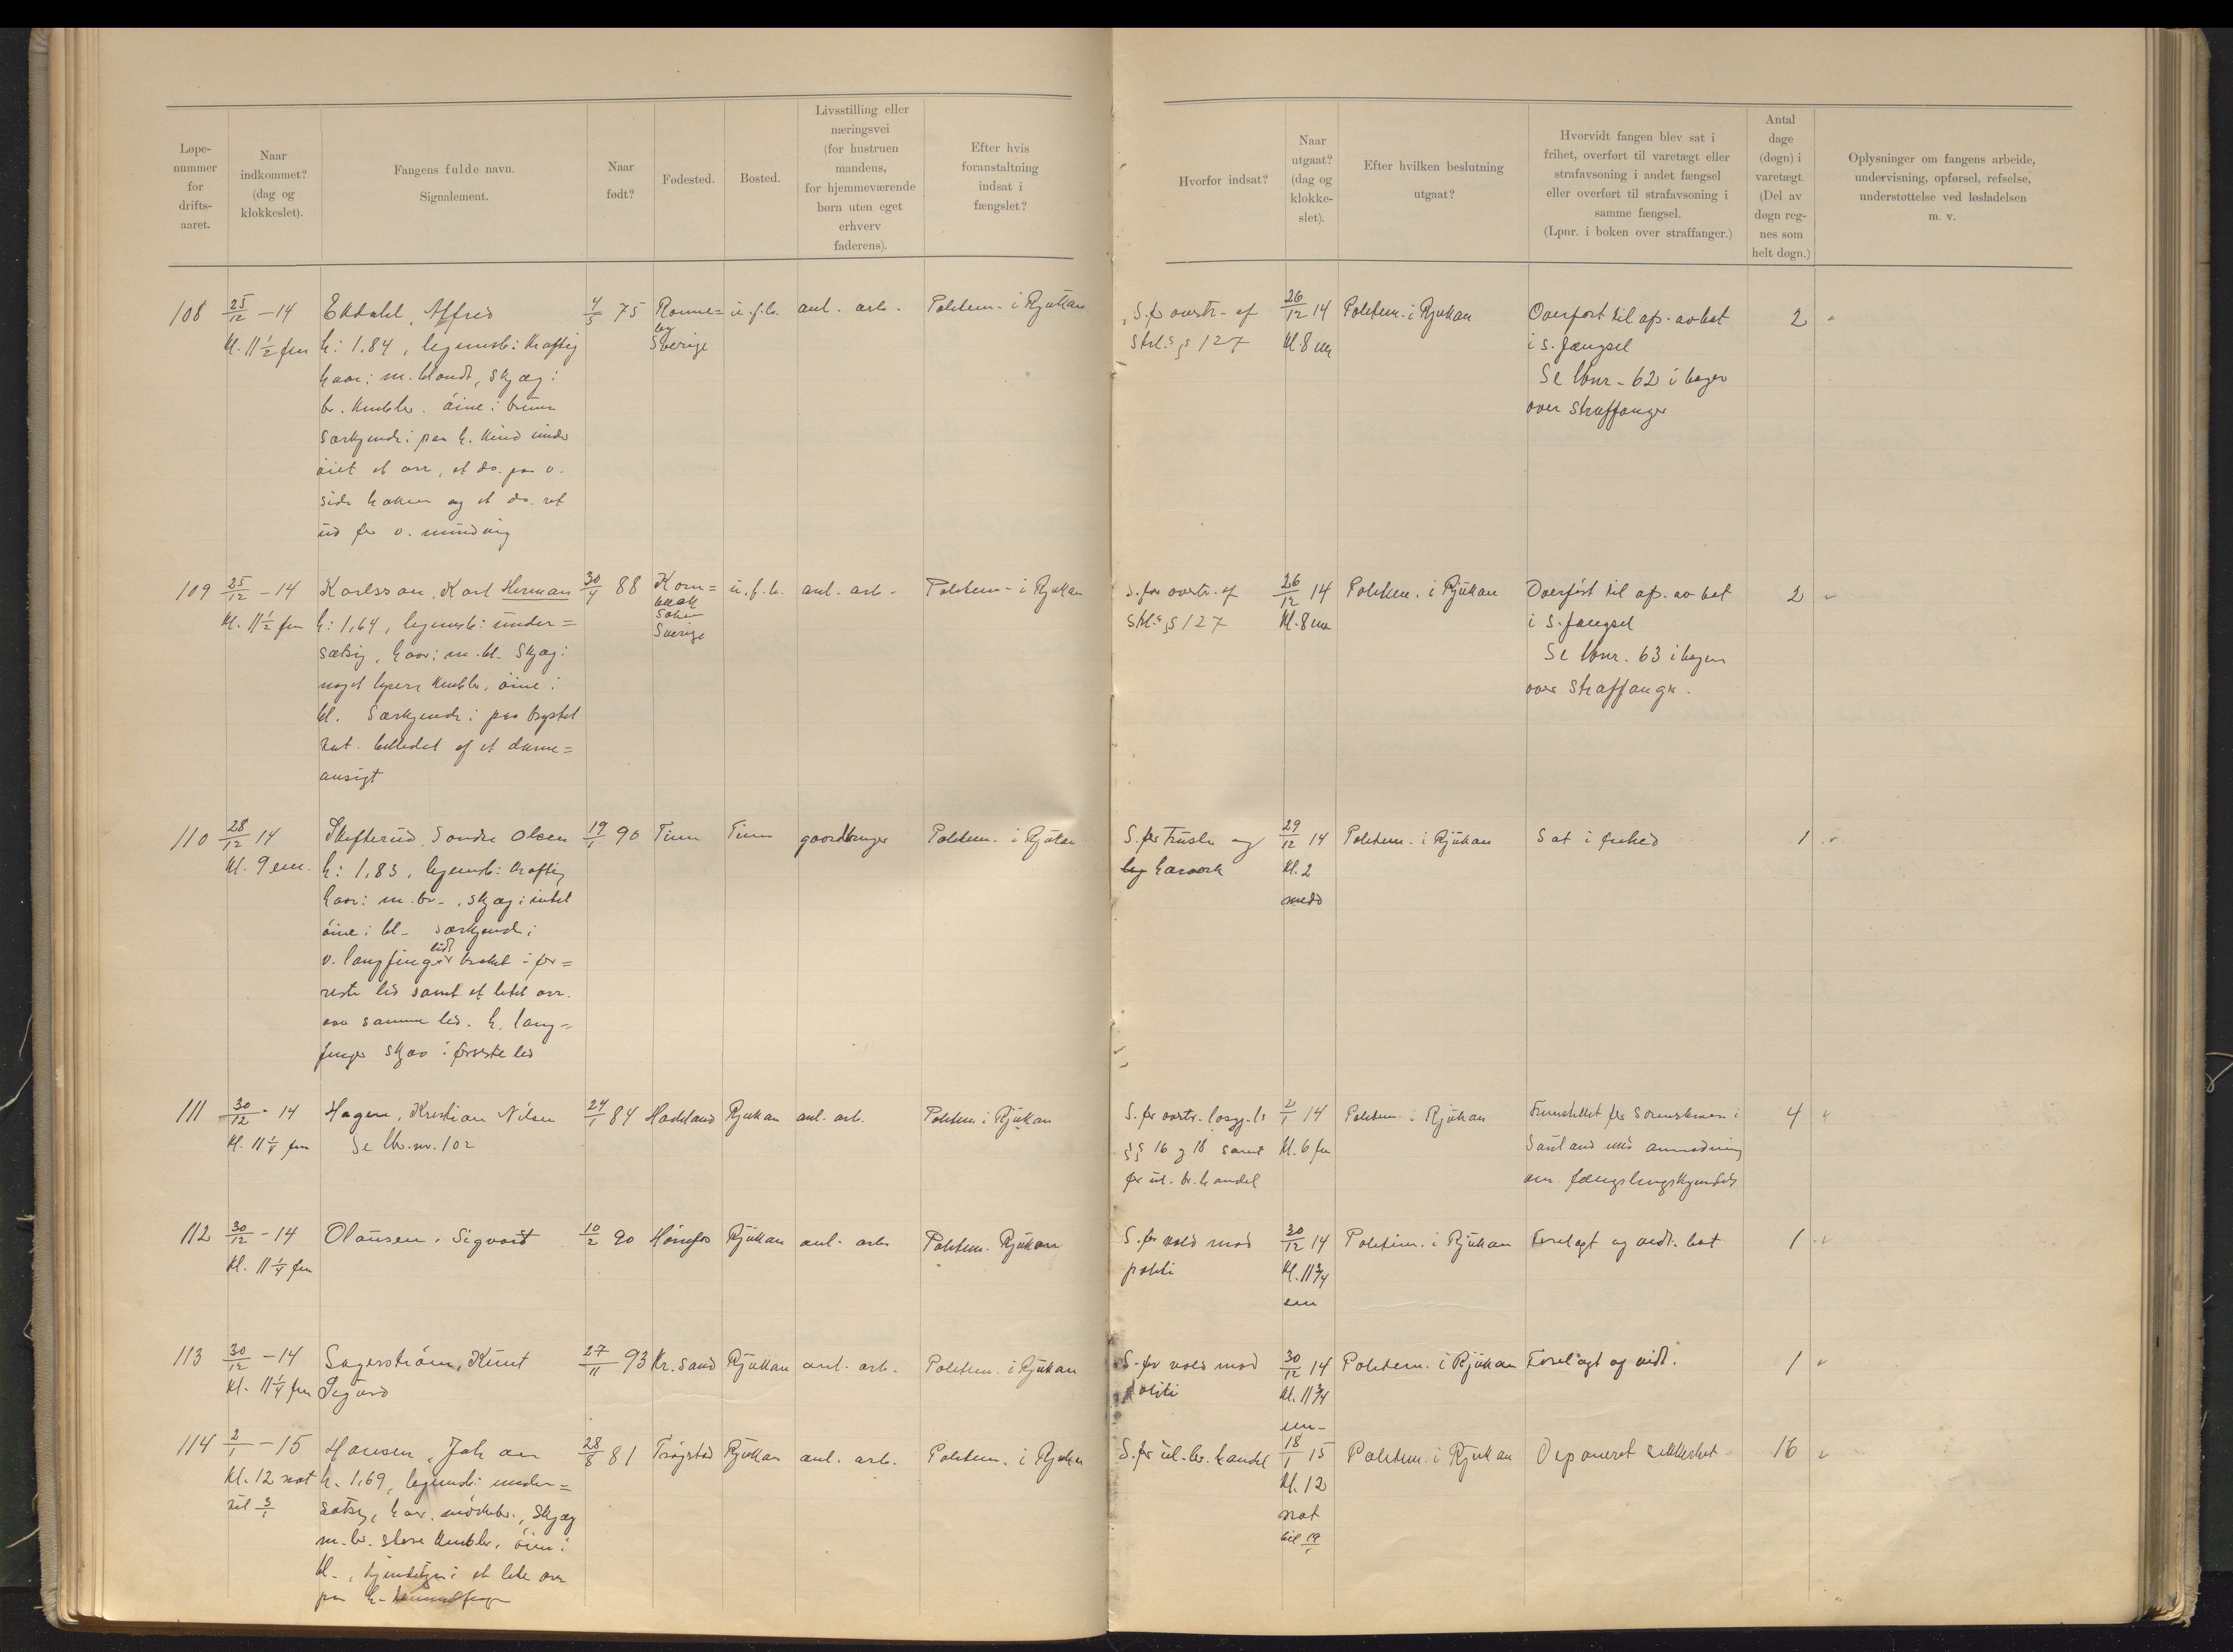 Løpe-
nummer
for
drifts-
aaret.
Naar
indkommet?
(dag og
klokkeslet).
Fangens fulde navn.
Signalement.
Naar
født?
Fødested.
Bosted.
Livsstilling eller
næringsvei
(for hustruen
mandens,
for hjemmeværende
børn uten eget
erhverv
faderens).
Efter hvis
foranstaltning
indsat i
fængslet?
Hvorfor indsat?
Naar
utgaat?
(dag og
klokke-
slet).
Efter hvilken beslutning
utgaat?
Hvorvidt fangen blev sat i
frihet, overført til varetægt eller
strafavsoning i andet fængsel
eller overført til strafavsoning i
samme fængsel.
(Lpnr. i boken over straffanger.)
Antal
dage
(døgn) i
varetægt.
(Del av
døgn reg-
nes som
helt døgn.)
Oplysninger om fangens arbeide,
undervisning, opførsel, refselse,
understøttelse ved løsladelsen
m. v.
108 25/12 - 14 Ekdahl, Alfred 4/5 75 Ronne= u.f.b. anl. arb. Politem. i Rjukan
by
Kl. 11 1/2 fm h: 1,84, legemsb: kraftig Sverige
haar: m. blondt, skjæg:
br. knebler. øine: brune
Særkjende: paa h. kind under
øiet et arr, et do. paa v.
side haken og et do. ret
ud for v. mundvig
S. for overtr. af 26/12 14 Politem. i Rjukan Overført til afs. av bot 2
Strl.s § 127 Kl. 8 em i s. fængsel
Se lbnr. 62 i bogen
over straffanger
109 25/12 - 14 Karlsson, Karl Herman 30/4 88 u.f.b. anl. arb. Politem. i Rjukan
Kl. 11 1/2 fm h: 1,64, legemsb: under= Sverige
sætsig, haar: m. bl. Skjæg:
noget lysere knebler, øine:
bl. Særkjende: paa brystet
tat. billedet af et dame=
ansigt
S. for overtr. af 26/12 14 Politem. i Rjukan Overført til afs. av bot 2
Strl.s § 127 Kl. 8 em i s. fængsel
Se lbnr. 63 i bogen
over straffanger.
110 28/12 14 Skefterud, Sondre Olsen 19/1 90 Tinn Tinn gaardbruger Politem. i Rjukan
Kl. 9 em. h: 1,83, legemsb: kraftig
haar: m. br., skjæg: intet
øine: bl. særkjende:
v. langfinger lidt brækket i for=
reste led samt et litet arr.
paa samme led. h. lang=
finger skjæv i første led
S. for trusler og 29/12 14 Politem. i Rjukan Sat i frihed 1
hærverk Kl. 2
midd
111 30/12 - 14 Hagen, Kristian Nilsen 24/1 84 Hadeland Rjukan anl. arb. Politem. i Rjukan
Kl. 11 1/4 fm Se lbr. nr. 102
S. for overtr. løsg.l.s 2/1 14 Politem. i Rjukan Fremstillet for Sorenskriveren i 4
§§ 16 og 18 samt Kl. 6 fm Sauland med anmodning
for ul. br. handel om fængslingskjendelse
112 30/12 - 14 Olausen, Sigvart 10/2 90 Hønefos Rjukan anl. arb. Politem. Rjukan
Kl. 11 1/4 fm
S. for vold mod 30/12 14 Politem. i Rjukan Forelagt og vedt. bot 1
politi Kl. 11 3/4
em
113 30/12 - 14 Sagerstrøm, Knut 27/11 93 Kr. sand Rjukan anl. arb. Politem. i Rjukan
Kl. 11 1/4 fm Sigurd
S. for vold mod 30/12 14 Politem. i Rjukan Forelagt og vedt. 1
politi Kl. 11 3/4
em
114 2/1 - 15 Hansen, Johan 28/8 81 Trøgstad Rjukan anl. arb. Politem. i Rjukan
Kl. 12 nat h. 1,69, legemsb: under=
til 3/1 sætsig, haar. mørkebr., Skjæg
m. br. store knebler, øine:
bl., kjendetegn: et lite arr
paa h.
S. for ul. br. handel 18/1 15 Politem. i Rjukan Deponeret sikkerhet 16
Kl. 12
nat
til 19/1